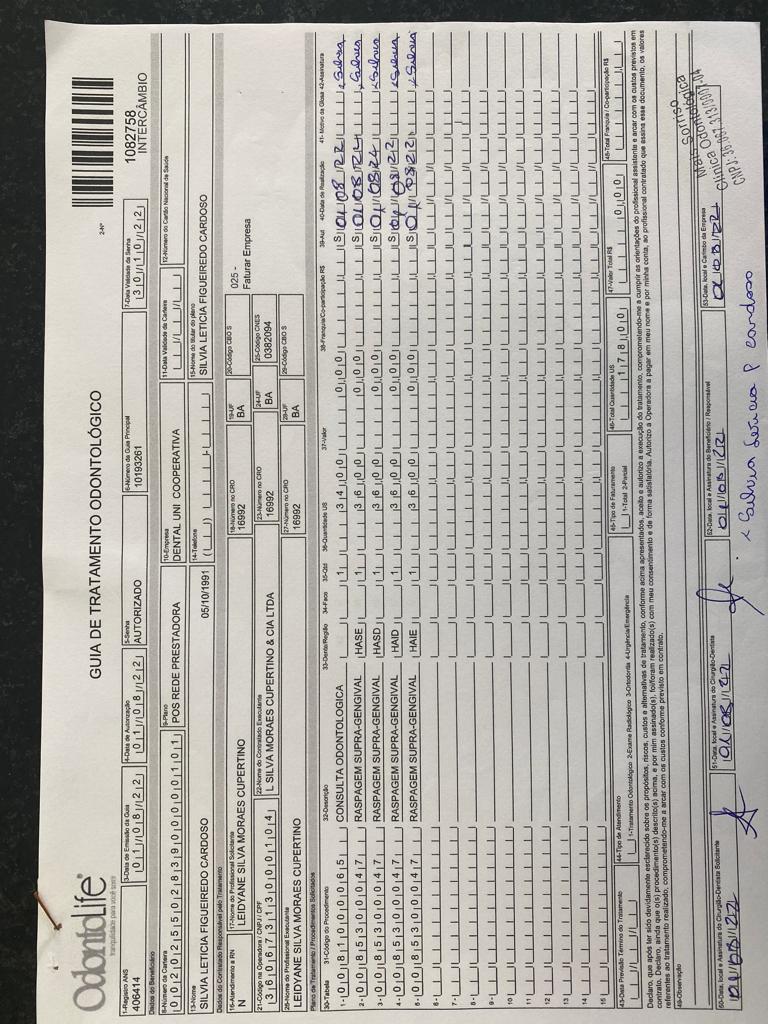 OdontoLife
tranquilidade para você sorrir
GUIA DE TRATAMENTO ODONTOLÓGICO
2-Nº
1082758
INTERCÂMBIO
1-Registro ANS
406414
3-Data de Emissão da Guia
01/08/22
4-Data de Autorização
01/08/22
5-Senha
AUTORIZADO
6-Número da Guia Principal
10193261
7-Data Validade da Senha
30/10/22
Dados do Beneficiário
8-Número da Carteira
002025502839000001101
9-Plano
POS REDE PRESTADORA
10-Empresa
DENTAL UNI COOPERATIVA
11-Data Validade da Carteira
12-Número do Cartão Nacional de Saúde
13-Nome
SILVIA LETICIA FIGUEIREDO CARDOSO
05/10/1991
14-Telefone
15-Nome do titular do plano
SILVIA LETICIA FIGUEIREDO CARDOSO
Dados do Contratado Responsável pelo Tratamento
16-Atendimento a RN
N
17-Nome do Profissional Solicitante
LEIDYANE SILVA MORAES CUPERTINO
18-Número no CRO
16992
19-UF
BA
20-Código CBO S
025 -
Faturar Empresa
21-Código na Operadora / CNPJ / CPF
36067313000104
22-Nome do Contratado Executante
L SILVA MORAES CUPERTINO & CIA LTDA
23-Número no CRO
16992
24-UF
BA
25-Código CNES
0382094
26-Nome do Profissional Executante
LEIDYANE SILVA MORAES CUPERTINO
27-Número no CRO
16992
28-UF
BA
29-Código CBO S
Plano de Tratamento / Procedimentos Solicitados
30-Tabela 31-Código do Procedimento 32-Descrição 33-Dente/Região 34-Face 35-Qtd 36-Quantidade US 37-Valor 38-Franquia/Co-participação R$ 39-Aut 40-Data de Realização 41- Motivo da Glosa 42-Assinatura
1- 00 81000065 CONSULTA ODONTOLOGICA 1 34,00 0,00 S 01/08/22 x Silvia
2- 00 85300047 RASPAGEM SUPRA-GENGIVAL HASE 1 36,00 0,00 S 01/08/22 x Silvia
3- 00 85300047 RASPAGEM SUPRA-GENGIVAL HASD 1 36,00 0,00 S 01/08/22 x Silvia
4- 00 85300047 RASPAGEM SUPRA-GENGIVAL HAID 1 36,00 0,00 S 01/08/22 x Silvia
5- 00 85300047 RASPAGEM SUPRA-GENGIVAL HAIE 1 36,00 0,00 S 01/08/22 x Silvia
6-
7-
8-
9-
10
11
12
13
14
15
43-Data Previsão Término do Tratamento
44-Tipo de Atendimento
1-Tratamento Odontológico 2-Exame Radiológico 3-Ortodontia 4-Urgência/Emergência
45-Tipo de Faturamento
1-Total 2-Parcial
46-Total Quantidade US
178,00
47-Valor Total R$
0,00
48-Total Franquia / Co-participação R$
Declaro, que após ter sido devidamente esclarecido sobre os propósitos, riscos, custos e alternativas de tratamento, conforme acima apresentados, aceito e autorizo a execução do tratamento, comprometendo-me a cumprir as orientações do profissional assistente e arcar com os custos previstos em
contrato. Declaro, ainda que o(s) procedimento(s) descrito(s) acima, e por mim assinado(s), foi/foram realizado(s) com meu consentimento e de forma satisfatória. Autorizo a Operadora a pagar em meu nome e por minha conta, ao profissional contratado que assina esse documento, os valores
referentes ao tratamento realizado, comprometendo-me a arcar com os custos conforme previsto em contrato.
49-Observação
50-Data, local e Assinatura do Cirurgião-Dentista Solicitante
01/08/22
51-Data, local e Assinatura do Cirurgião-Dentista
01/08/22
52-Data, local e Assinatura do Beneficiário / Responsável
01/08/22
53-Data, local e Carimbo da Empresa
01/08/22
Sorriso
Mais Odontológica
Clínica